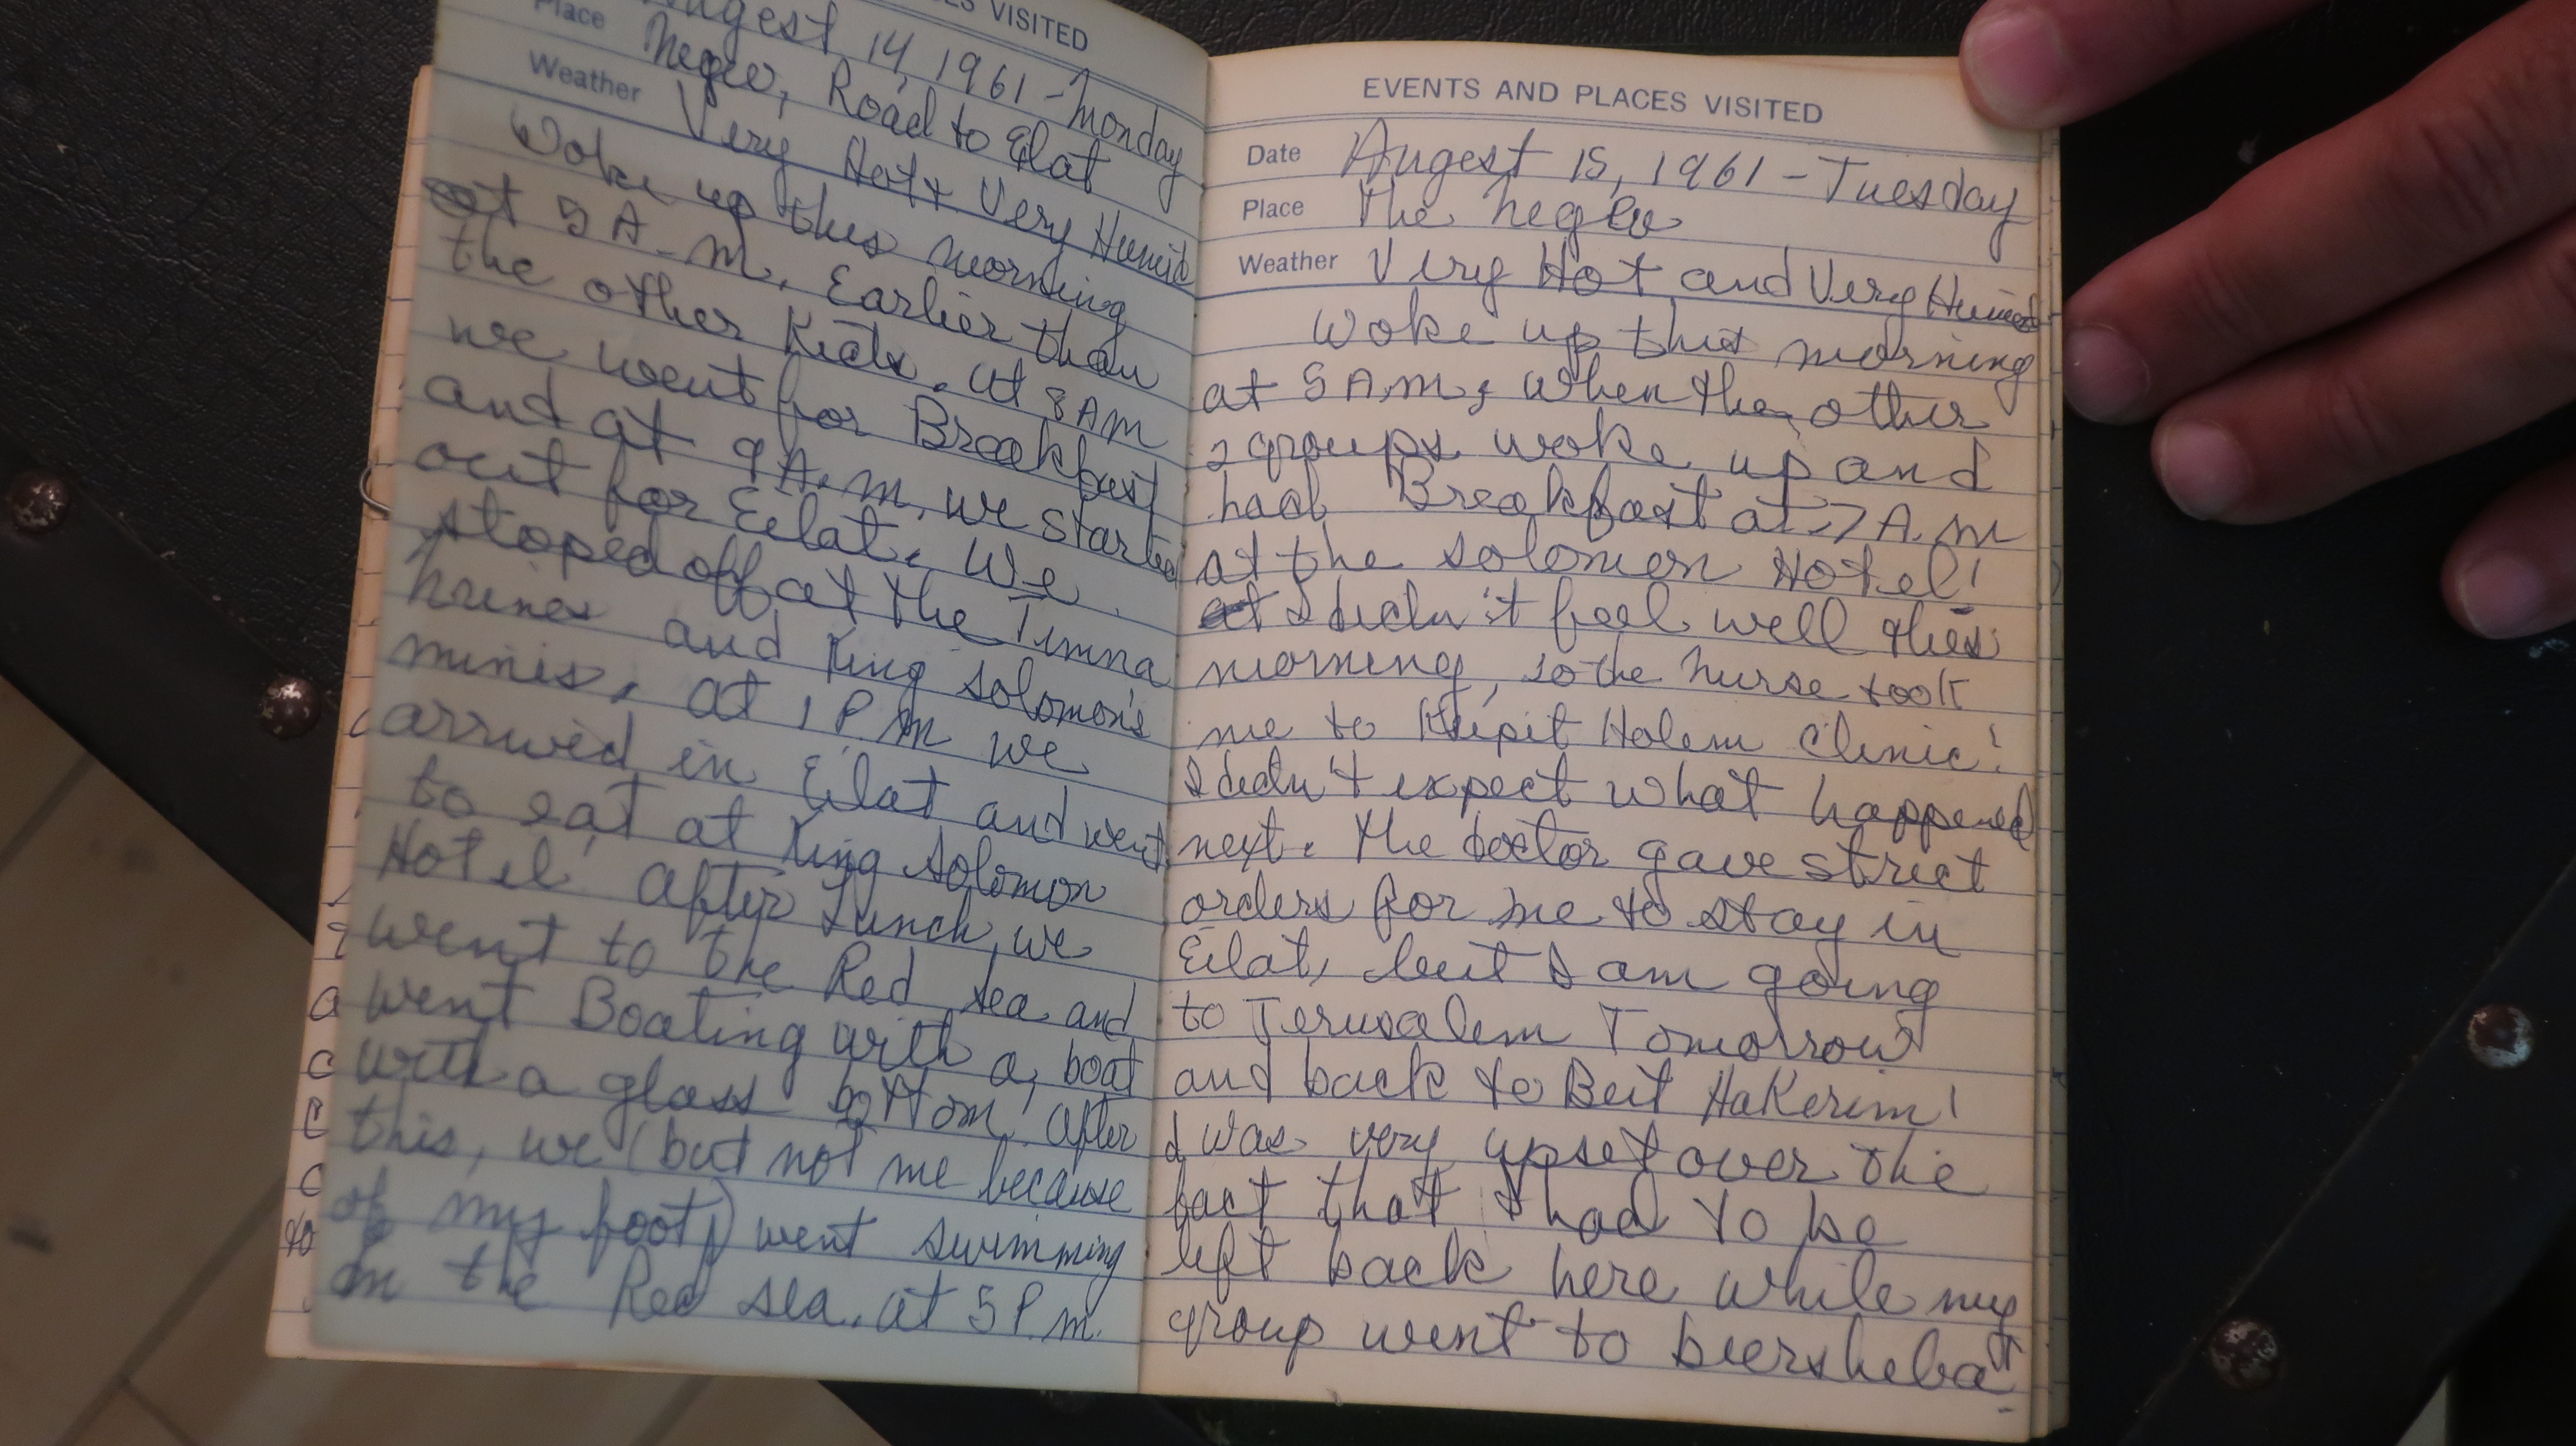 ES VISITED
Augest 14, 1961 - Monday
Place Negev, Road to Eilat
Weather Very Hot + Very Humid
Woke up this morning
at 5 A.M. Earlier than
the other Kids. At 8 AM
we went for Breakfast
and at 9 A.M. we started
out for Eilat. We
stoped off at the Timna
and King Solomon's
mines. At 1 P.M we
arrived in Eilat and went
to eat at King Solomon
Hotel. After Lunch, we
went to the Red sea and
went Boating with a boat
with a glass bottom! After
this, we (but not me because
of my foot) went swimming
in the Red sea. at 5 P.M.
EVENTS AND PLACES VISITED
Date Augest 15, 1961 - Tuesday
Place The Negev
Weather Very Hot and Very Humid
Woke up this morning
at 5 A.M, when the other
2 groups woke up and
had Breakfast at 7 A.M
at the Solomon Hotel!
I didn't feel well this
morning, so the nurse took
me to Kupit Holem Clinic!
I didn't expect what happened
next. The doctor gave strict
orders for me to stay in
Eilat, but I am going
to Jerusalem Tomorrow
and back to Beit HaKerim!
I was very upset over the
fact that I had to be
left back here while my
group went to beersheba